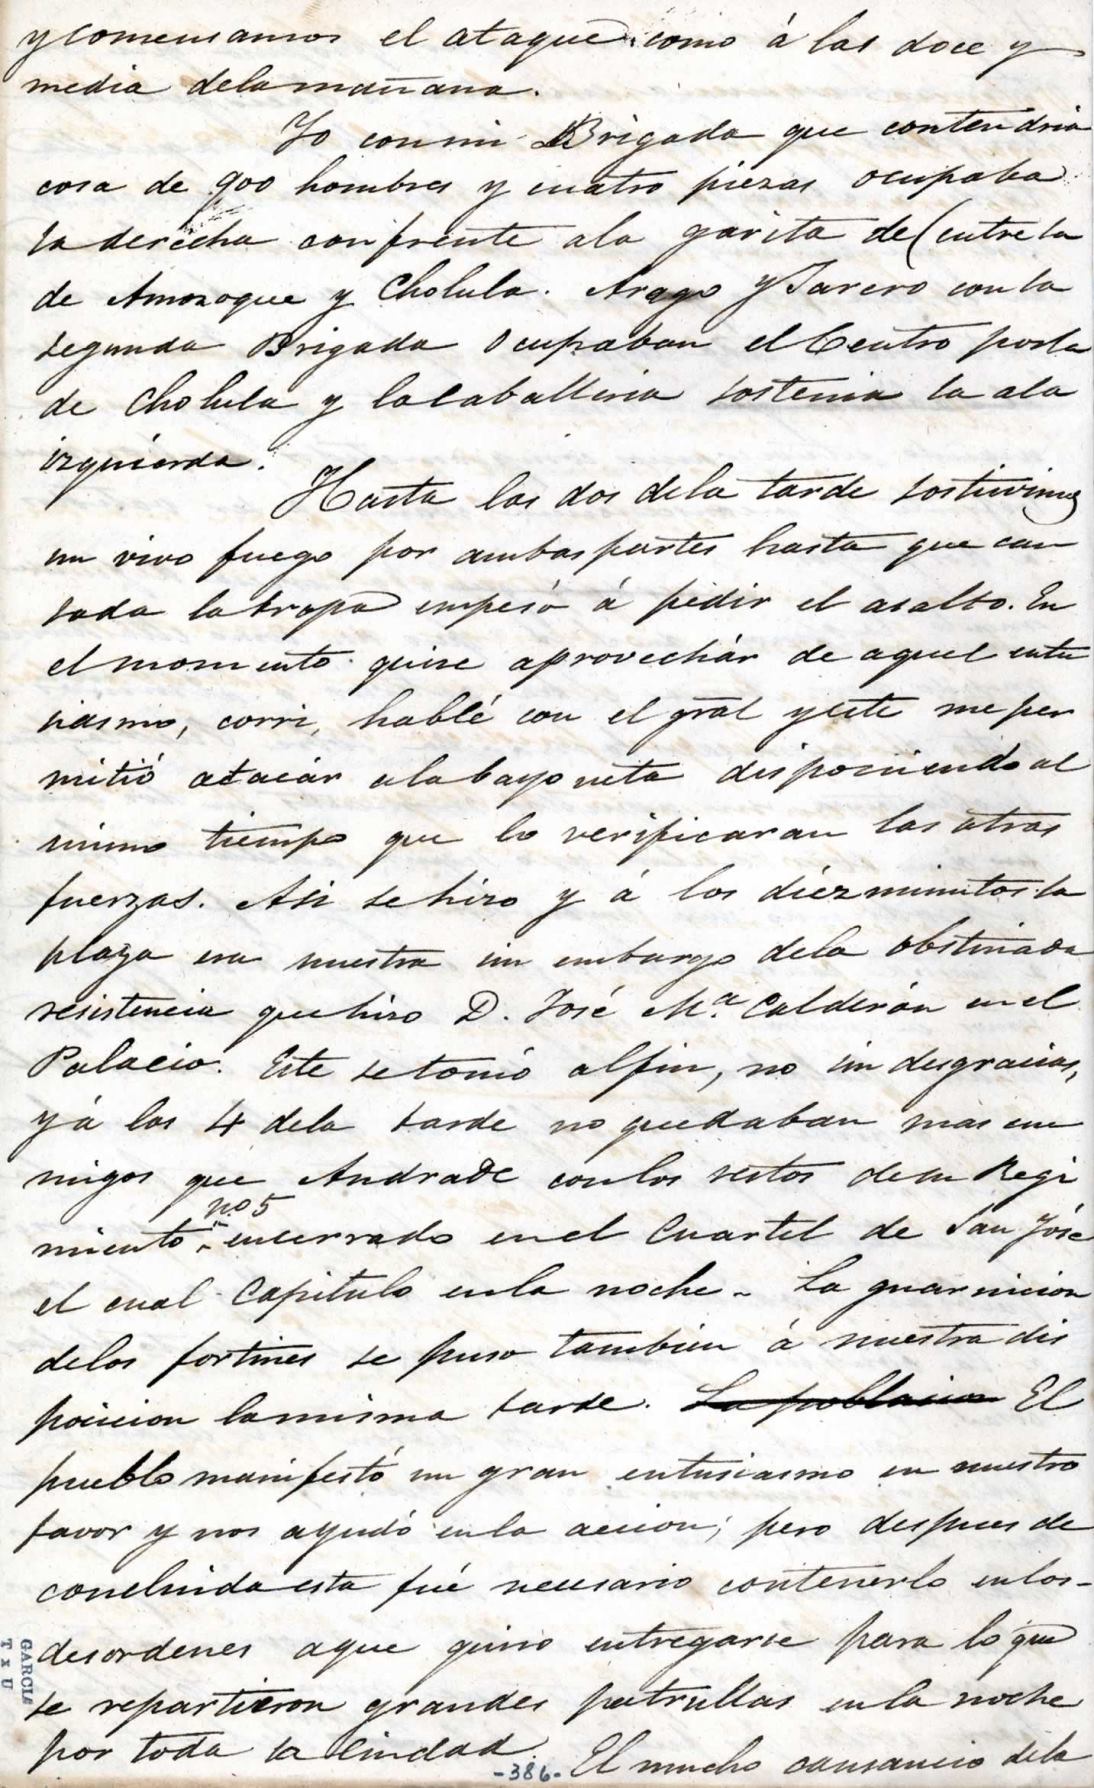 y comensamos el ataque como á las doce y
media dela mañana.
Yo con mi Brigada que contendria
cosa de 900 hombres y cuatro piezas ocupaba
la derecha con frente ala garita de (entre la
de Amozoque y Cholula. Arago y Tarero con la
segunda Brigada ocupaban el Centro por la
de Cholula y la Caballeria sostenia la ala
izquierda.
Hasta las dos dela tarde sostuvimos
un vivo fuego por ambas partes hasta que can
sada la tropa empesó á pedir el asalto. En
el momento quise aprovechár de aquel entu
siasmo, corri, hablé con el gral y este me per
mitió atacár ala bayoneta disponiendo al
mismo tiempo que lo verificaran las otras
fuerzas. Asi se hizo y á los diez minutos la
plaza era nuestra sin embargo dela obstinada
resistencia que hizo D. José Ma. Calderón en el
Palacio. Este se tomó al fin, no sin desgracias,
y á las 4 dela tarde no quedaban mas ene
migos que Andrade con los restos de su Regi
no 5
miento encerrado en el Cuartel de San José
el cual Capituló en la noche. La guarnicion
delos fortines se puso tambien á nuestra dis
posicion la misma tarde. La poblacion El
pueblo manifestó un gran entusiasmo en nuestro
favor y nos ayudó en la accion; pero despues de
concluida esta fué necesario contenerlo en los
desordenes a que quiso entregarse para lo que
se repartieron grandes patrullas en la noche
por toda la Ciudad. El mucho cansancio dela
-386-
GARCIA
T x U